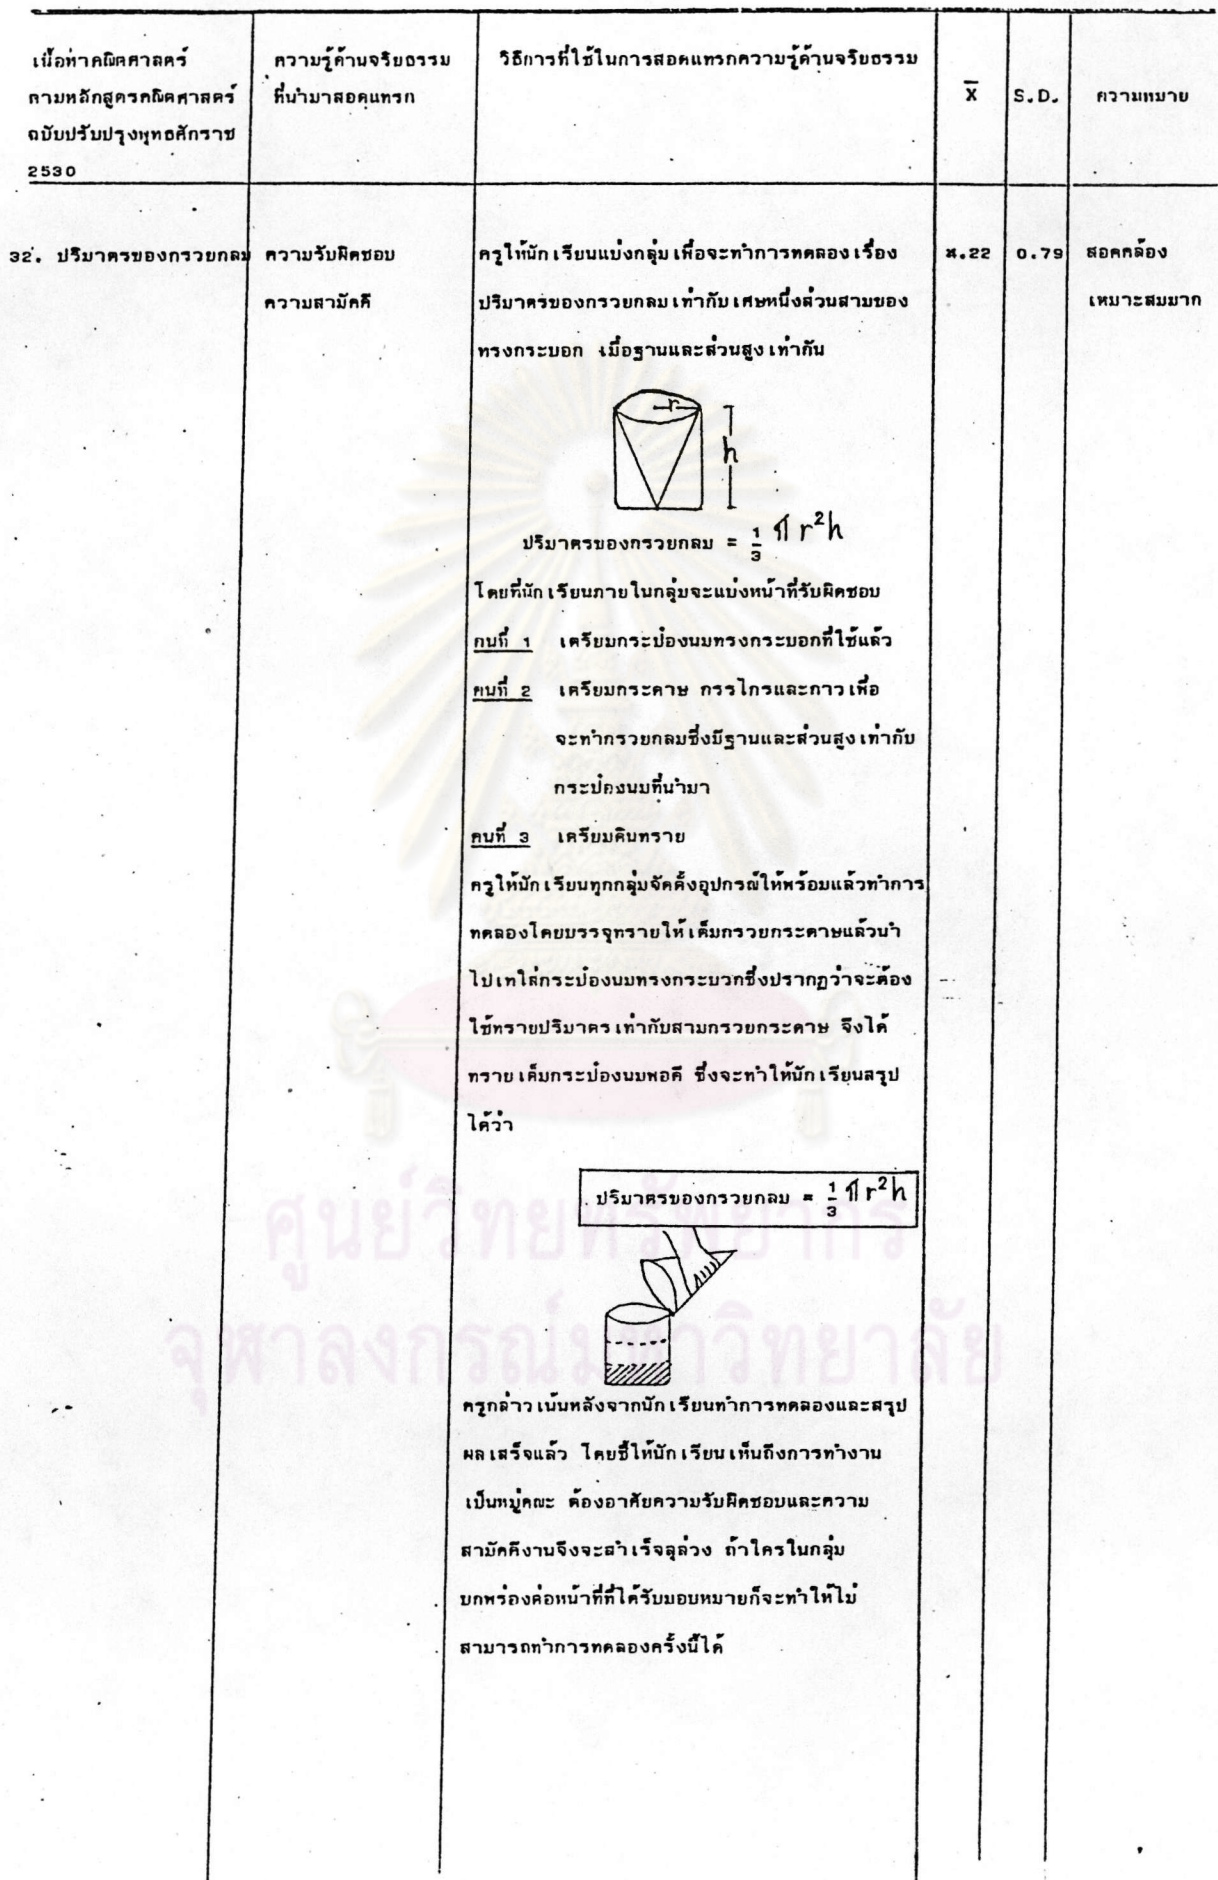 เนื้อหาคณิตศาสตร์
ตามหลักสูตรคณิตศาสตร์
ฉบับปรับปรุงพุทธศักราช
2530
ความรู้ด้านจริยธรรม
ที่นำมาสอดแทรก
วิธีการที่ใช้ในการสอดแทรกความรู้ด้านจริยธรรม
X̄
S.D.
ความหมาย
32. ปริมาตรของกรวยกลม
ความรับผิดชอบ
ความสามัคคี
ครูให้นักเรียนแบ่งกลุ่มเพื่อจะทำการทดลองเรื่อง
ปริมาตรของกรวยกลมเท่ากับเศษหนึ่งส่วนสามของ
ทรงกระบอก เมื่อฐานและส่วนสูงเท่ากัน
.22
0.79
สอดคล้อง
เหมาะสมมาก
r
h
ปริมาตรของกรวยกลม = 1/3 π r²h
โดยที่นักเรียนภายในกลุ่มจะแบ่งหน้าที่รับผิดชอบ
คนที่ 1 เตรียมกระป๋องนมทรงกระบอกที่ใช้แล้ว
คนที่ 2 เตรียมกระดาษ กรรไกรและกาวเพื่อ
จะทำกรวยกลมซึ่งมีฐานและส่วนสูงเท่ากับ
กระป๋องนมที่นำมา
คนที่ 3 เตรียมดินทราย
ครูให้นักเรียนทุกกลุ่มจัดตั้งอุปกรณ์ให้พร้อมแล้วทำการ
ทดลองโดยบรรจุทรายให้เต็มกรวยกระดาษแล้วนำ
ไปเทใส่กระป๋องนมทรงกระบวกซึ่งปรากฏว่าจะต้อง
ใช้ทรายปริมาตรเท่ากับสามกรวยกระดาษ จึงได้
ทรายเต็มกระป๋องนมพอดี ซึ่งจะทำให้นักเรียนสรุป
ได้ว่า
ปริมาตรของกรวยกลม = 1/3 π r²h
ครูกล่าวเน้นหลังจากนักเรียนทำการทดลองและสรุป
ผลเสร็จแล้ว โดยชี้ให้นักเรียนเห็นถึงการทำงาน
เป็นหมู่คณะ ต้องอาศัยความรับผิดชอบและความ
สามัคคีงานจึงจะสำเร็จลุล่วง ถ้าใครในกลุ่ม
บกพร่องต่อหน้าที่ที่ได้รับมอบหมายก็จะทำให้ไม่
สามารถทำการทดลองครั้งนี้ได้
ศูนย์วิทยทรัพยากร
จุฬาลงกรณ์มหาวิทยาลัย